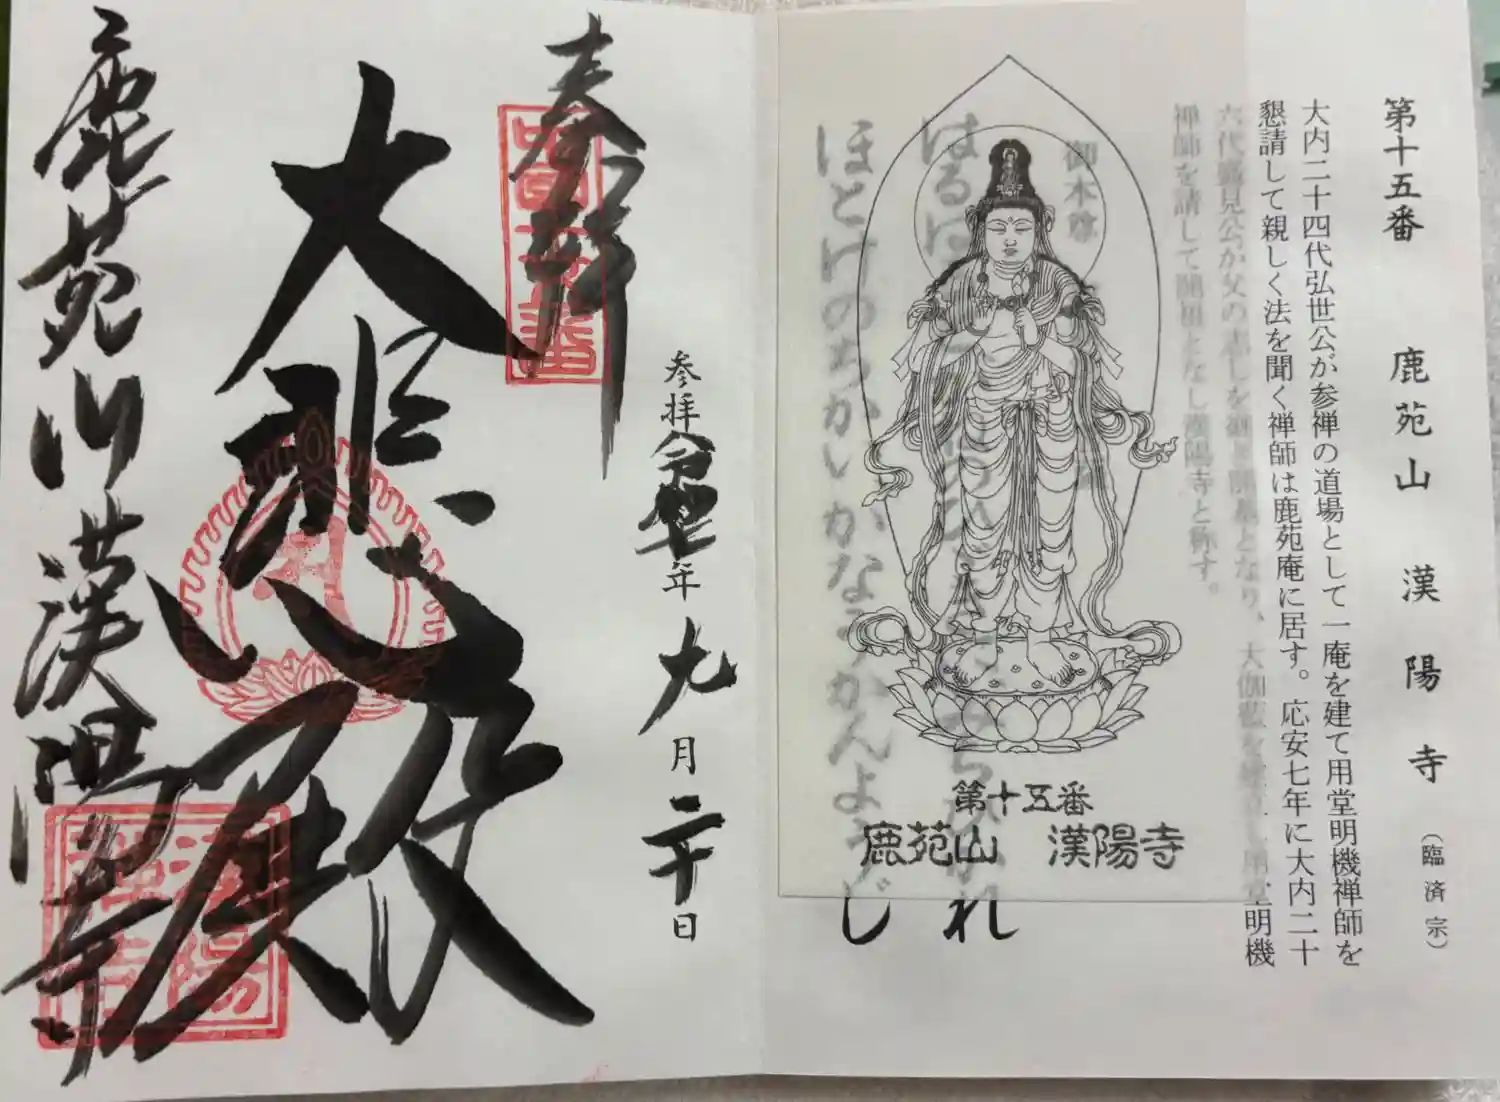 第十五番 鹿苑山 漢陽寺 (臨済宗)
大内二十四代弘世公が参禅の道場として一庵を建て用堂明機禅師を
懇請して親しく法を聞く禅師は鹿苑庵に居す。応安七年に大内二十
六代盛見公が父の志しを継ぎ開基となり、大伽藍を建立し用堂明機
禅師を請して開祖となし漢陽寺と称す。
御本尊
ほとけのちかいかなうかんようじ
第十五番
鹿苑山 漢陽寺
奉拝
中国十五番
参拝令和七年九月二十日
大悲殿
鹿苑山漢陽寺
漢陽禅寺